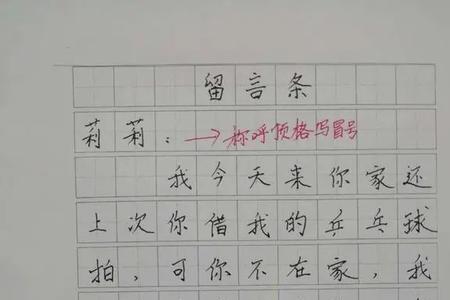 留言条
莉莉：→称呼顶格写冒号
我今天来你家还
上次你借我的乒乓球
拍，可你不在家，我